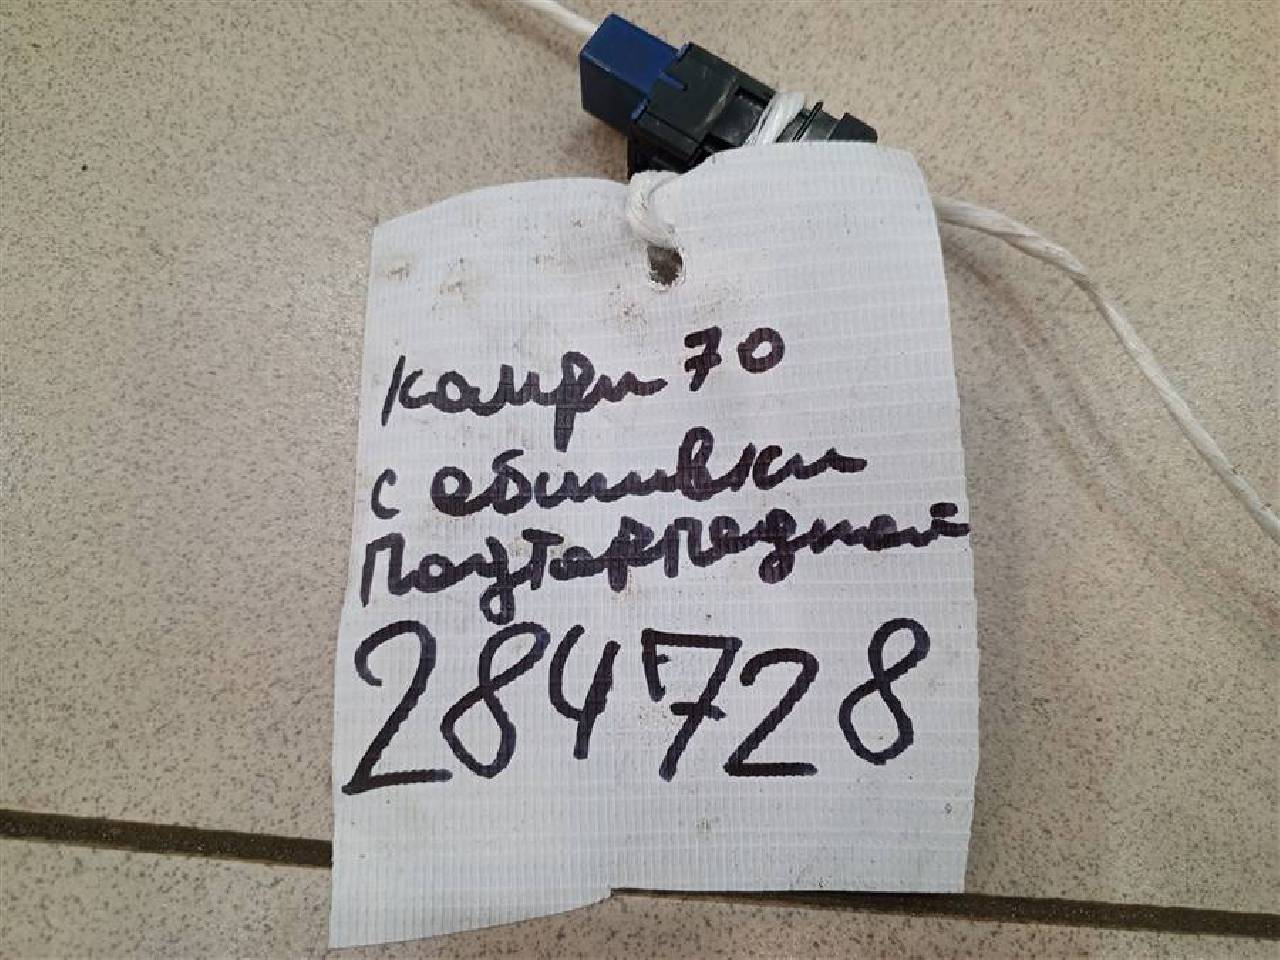 камри 70
с обшивки
подторпедной
284728